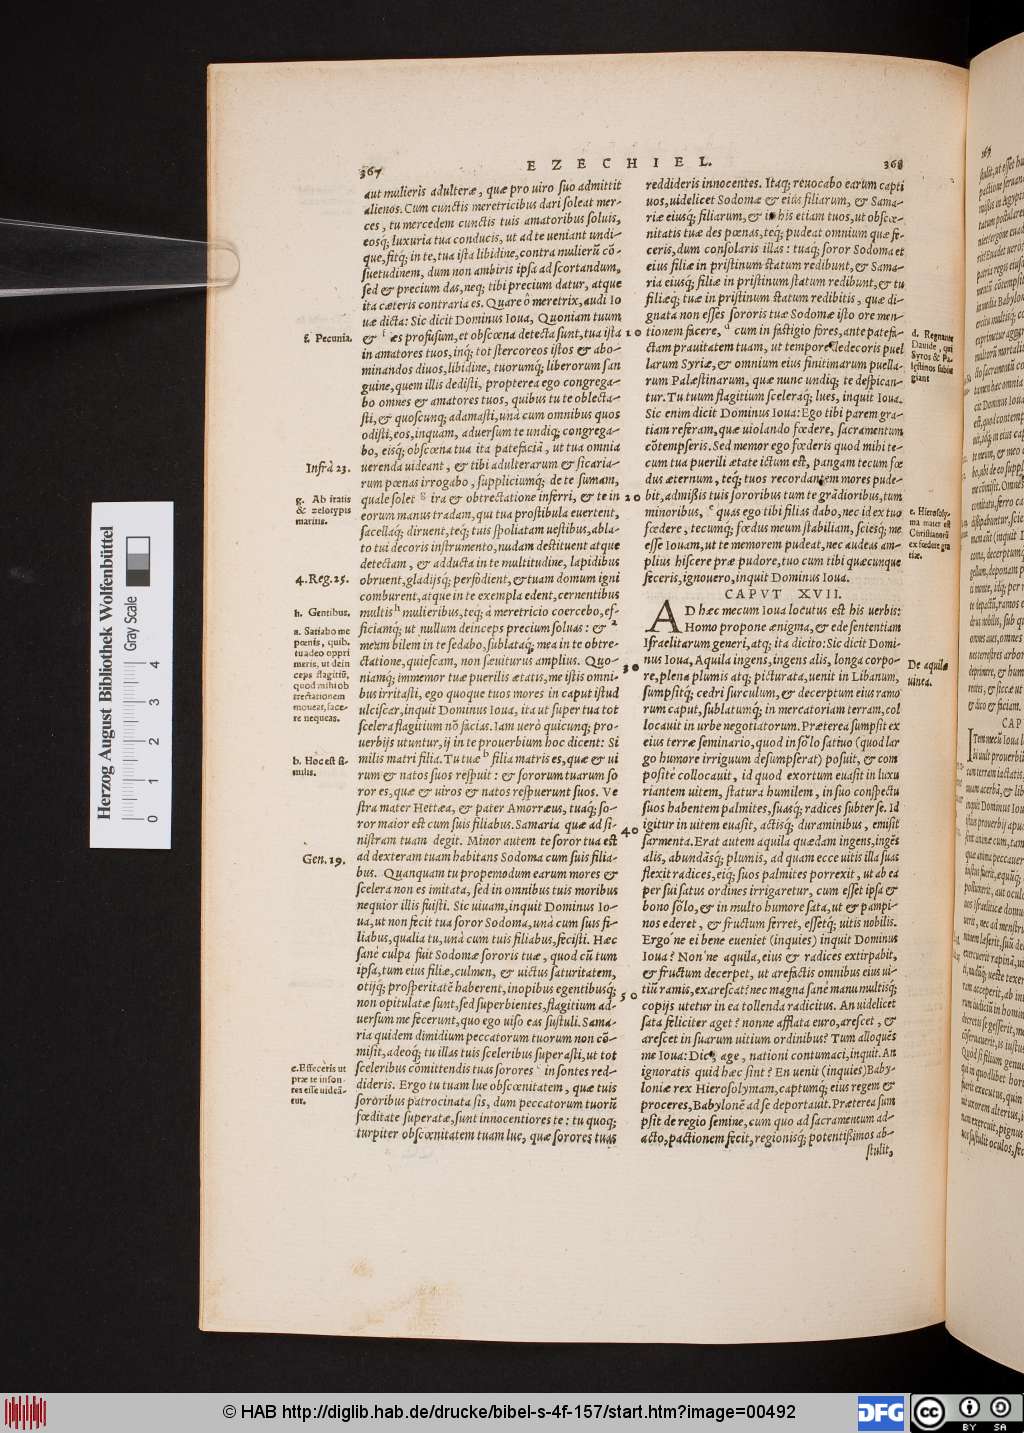 367
EZECHIEL.
368
aut mulieris adulteræ, quæ pro uiro suo admittit
alienos. Cum cunctis meretricibus dari soleat mer-
ces, tu mercedem cunctis tuis amatoribus soluis,
eosq́; luxuria tua conducis, ut ad te ueniant undi-
que, fitq́; in te, tua ista libidine, contra mulierũ cõ-
suetudinem, dum non ambiris ipsa ad scortandum,
sed & precium das, neq; tibi precium datur, atque
ita cæteris contraria es. Quare ô meretrix, audi Io
uæ dicta: Sic dicit Dominus Ioua, Quoniam tuum
& f æs profusum, et obscœna detecta sunt, tua ista
in amatores tuos, inq́; tot stercoreos istos & abo-
minandos diuos, libidine, tuorumq́; liberorum san
guine, quem illis dedisti, propterea ego congrega-
bo omnes & amatores tuos, quibus tu te oblecta-
sti, & quoscunq; adamasti, unà cum omnibus quos
odisti, eos, inquam, aduersum te undiq; congrega-
bo, eisq́; obscœna tua ita patefaciã, ut tua omnia
uerenda uideant, & tibi adulterarum & sicaria-
rum pœnas irrogabo, suppliciumq́; de te sumam,
quale solet g ira & obtrectatione inferri, & te in
eorum manus tradam, qui tua prostibula euertent,
sacellaq́; diruent, teq́; tuis spoliatam uestibus, abla-
to tui decoris instrumento, nudam destituent atque
detectam, & adducta in te multitudine, lapidibus
obruent, gladijsq́; perfodient, & tuam domum igni
comburent, atque in te exempla edent, cernentibus
multis h mulieribus, teq́; à meretricio coercebo, ef-
ficiamq́; ut nullum deinceps precium soluas: & a
meum bilem in te sedabo, sublataq́; mea in te obtre-
ctatione, quiescam, non sæuiturus amplius. Quo-
niamq́; immemor tuæ puerilis ætatis, me istis omni-
bus irritasti, ego quoque tuos mores in caput istud
ulciscar, inquit Dominus Ioua, ita ut super tua tot
scelera flagitium nõ facias. Iam uerò quicunq; pro-
uerbijs utuntur, ij in te prouerbium hoc dicent: Si
milis matri filia. Tu tuæ b filia matris es, quæ & ui
rum & natos suos respuit: & sororum tuarum so
ror es, quæ & uiros & natos respuerunt suos. Ve
stra mater Hettæa, & pater Amorræus, tuaq́; so-
ror maior est cum suis filiabus. Samaria quæ ad si-
nistram tuam degit. Minor autem te soror tua est
ad dexteram tuam habitans Sodoma cum suis filia-
bus. Quanquam tu propemodum earum mores &
scelera non es imitata, sed in omnibus tuis moribus
nequior illis fuisti. Sic uiuam, inquit Dominus Io-
ua, ut non fecit tua soror Sodoma, unà cum suis fi-
liabus, qualia tu, unà cum tuis filiabus, fecisti. Hæc
sanè culpa fuit Sodomæ sororis tuæ, quod cũ tum
ipsa, tum eius filiæ, culmen, & uictus saturitatem,
otijq́; prosperitatẽ haberent, inopibus egentibusq́;
non opitulatæ sunt, sed superbientes, flagitium ad-
uersum me fecerunt, quo ego uiso eas sustuli. Sama-
ria quidem dimidium peccatorum tuorum non cõ-
misit, adeoq́; tu illas tuis sceleribus superasti, ut tot
sceleribus cõmittendis tuas sorores c insontes red-
dideris. Ergo tu tuam lue obscœnitatem, quæ tuis
sororibus patrocinata sis, dum peccatorum tuorũ
fœditate superatæ, sunt innocentiores te: tu quoq;
turpiter obscœnitatem tuam lue, quæ sorores tuas
f. Pecunia.
Infrà 23.
g. Ab iratis
& zelotypis
maritis.
4. Reg. 25.
h. Gentibus.
a. Satiabo me
pœnis, quib.
tu adeo oppri
meris, ut dein
ceps flagitiũ,
quod mihi ob
trectationem
moueat, face-
re nequeas.
b. Hoc est si-
milis.
Gen. 19.
c. Effeceris ut
præ te inson-
tes esse uideã-
tur.
10
20
30
40
50
reddideris innocentes. Itaq; reuocabo earum capti
uos, uidelicet Sodomæ & eius filiarum, & Sama-
riæ eiusq́; filiarum, & in his etiam tuos, ut obscœ-
nitatis tuæ des pœnas, teq́; pudeat omnium quæ fe-
ceris, dum consolaris illas: tuaq́; soror Sodoma et
eius filiæ in pristinum statum redibunt, & Sama-
ria eiusq́; filiæ in pristinum statum redibunt, & tu
filiæq́; tuæ in pristinum statum redibitis, quæ di-
gnata non esses sororis tuæ Sodomæ isto ore men-
tionem facere, d cum in fastigio fores, ante patefa-
ctam prauitatem tuam, ut tempore dedecoris puel
larum Syriæ, & omnium eius finitimarum puella-
rum Palæstinarum, quæ nunc undiq; te despican-
tur. Tu tuum flagitium sceleraq́; lues, inquit Ioua.
Sic enim dicit Dominus Ioua: Ego tibi parem gra-
tiam referam, quæ uiolando fœdere, sacramentum
cõtempseris. Sed memor ego fœderis quod mihi te-
cum tua puerili ætate ictum est, pangam tecum fœ
dus æternum, teq́; tuos recordantem mores pude-
bit, admißis tuis sororibus tum te grãdioribus, tum
minoribus, e quas ego tibi filias dabo, nec id ex tuo
fœdere, tecumq́; fœdus meum stabiliam, sciesq́; me
esse Iouam, ut te memorem pudeat, nec audeas am-
plius hiscere præ pudore, tuo cum tibi quæcunque
feceris, ignouero, inquit Dominus Ioua.
CAPVT XVII.
AD hæc mecum Ioua locutus est his uerbis:
Homo propone ænigma, & ede sententiam
Israelitarum generi, atq; ita dicito: Sic dicit Domi-
nus Ioua, Aquila ingens, ingens alis, longa corpo-
re, plena plumis atq; picturata, uenit in Libanum,
sumpsitq́; cedri surculum, & decerptum eius ramo
rum caput, sublatumq́; in mercatoriam terram, col
locauit in urbe negotiatorum. Præterea sumpsit ex
eius terræ seminario, quod in solo satiuo (quod lar
go humore irriguum desumpserat) posuit, & com
positè collocauit, id quod exortum euasit in luxu
riantem uitem, statura humilem, in suo conspectu
suos habentem palmites, suasq́; radices subter se. Id
igitur in uitem euasit, actisq́; duraminibus, emisit
sarmenta. Erat autem aquila quædam ingens, ingẽs
alis, abundãsq́; plumis, ad quam ecce uitis illa suas
flexit radices, eiq́; suos palmites porrexit, ut ab ea
per sui satus ordines irrigaretur, cum esset ipsa &
bono solo, & in multo humore sata, ut & pampi-
nos ederet, & fructum ferret, essetq́; uitis nobilis.
Ergo ne ei bene eueniet (inquies) inquit Dominus
Ioua? Non'ne aquila, eius & radices extirpabit,
& fructum decerpet, ut arefactis omnibus eius ui-
tiũ ramis, exarescat? nec magna sanè manu multisq́;
copijs utetur in ea tollenda radicitus. An uidelicet
sata feliciter aget? nonne afflata euro, arescet, &
arescet in suarum uitium ordinibus? Tum alloquẽs
me Ioua: Dic, age, nationi contumaci, inquit. An
ignoratis quid hæc sint? En uenit (inquies) Baby-
loniæ rex Hierosolymam, captumq́; eius regem &
proceres, Babylonẽ ad se deportauit. Præterea sum
psit de regio semine, cum quo ad sacramentum ad-
acto, pactionem fecit, regionisq́; potentißimos ab-
stulit,
d. Regnante
Dauide, qui
Syros & Pa-
læstinos subie
giant
e. Hierosoly-
ma mater est
Christianorũ
ex fœdere gra
tiæ.
De aquila
uinea.
Herzog August Bibliothek Wolfenbüttel
Gray Scale
0 1 2 3 4
© HAB http://diglib.hab.de/drucke/bibel-s-4f-157/start.htm?image=00492
DFG
cc BY SA